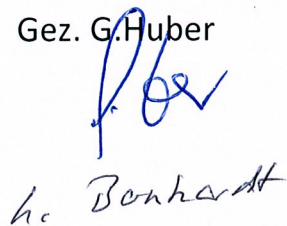 Gez. G.Huber
h. Bonhardt